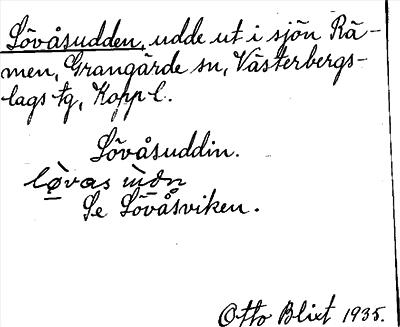 Lövåsudden, udde ut i sjön Rä-
men, Grangärde sn, Västerbergs-
lags tg, Kopp. l.
Lövåsuddin.
Se Lövåsviken.
Otto Blixt 1935.